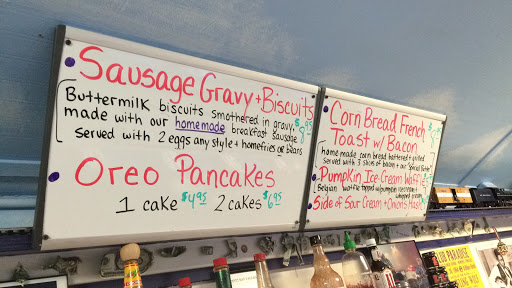 Sausage Gravy + Biscuits
Buttermilk biscuits smothered in gravy
made with our homemade breakfast sausage
served with 2 eggs any style + homefries or beans
Oreo Pancakes
1 cake $4.95 2 cakes $6.95
Corn Bread French
Toast w/ Bacon
homemade corn bread battered + grilled
served with 3 slices of bacon + our "Special Butter"
Pumpkin Ice Cream Waffle
Belgian waffle topped w/pumpkin ice cream +
whipped cream
Side of Sour Cream + Onion Hash
PARADISE